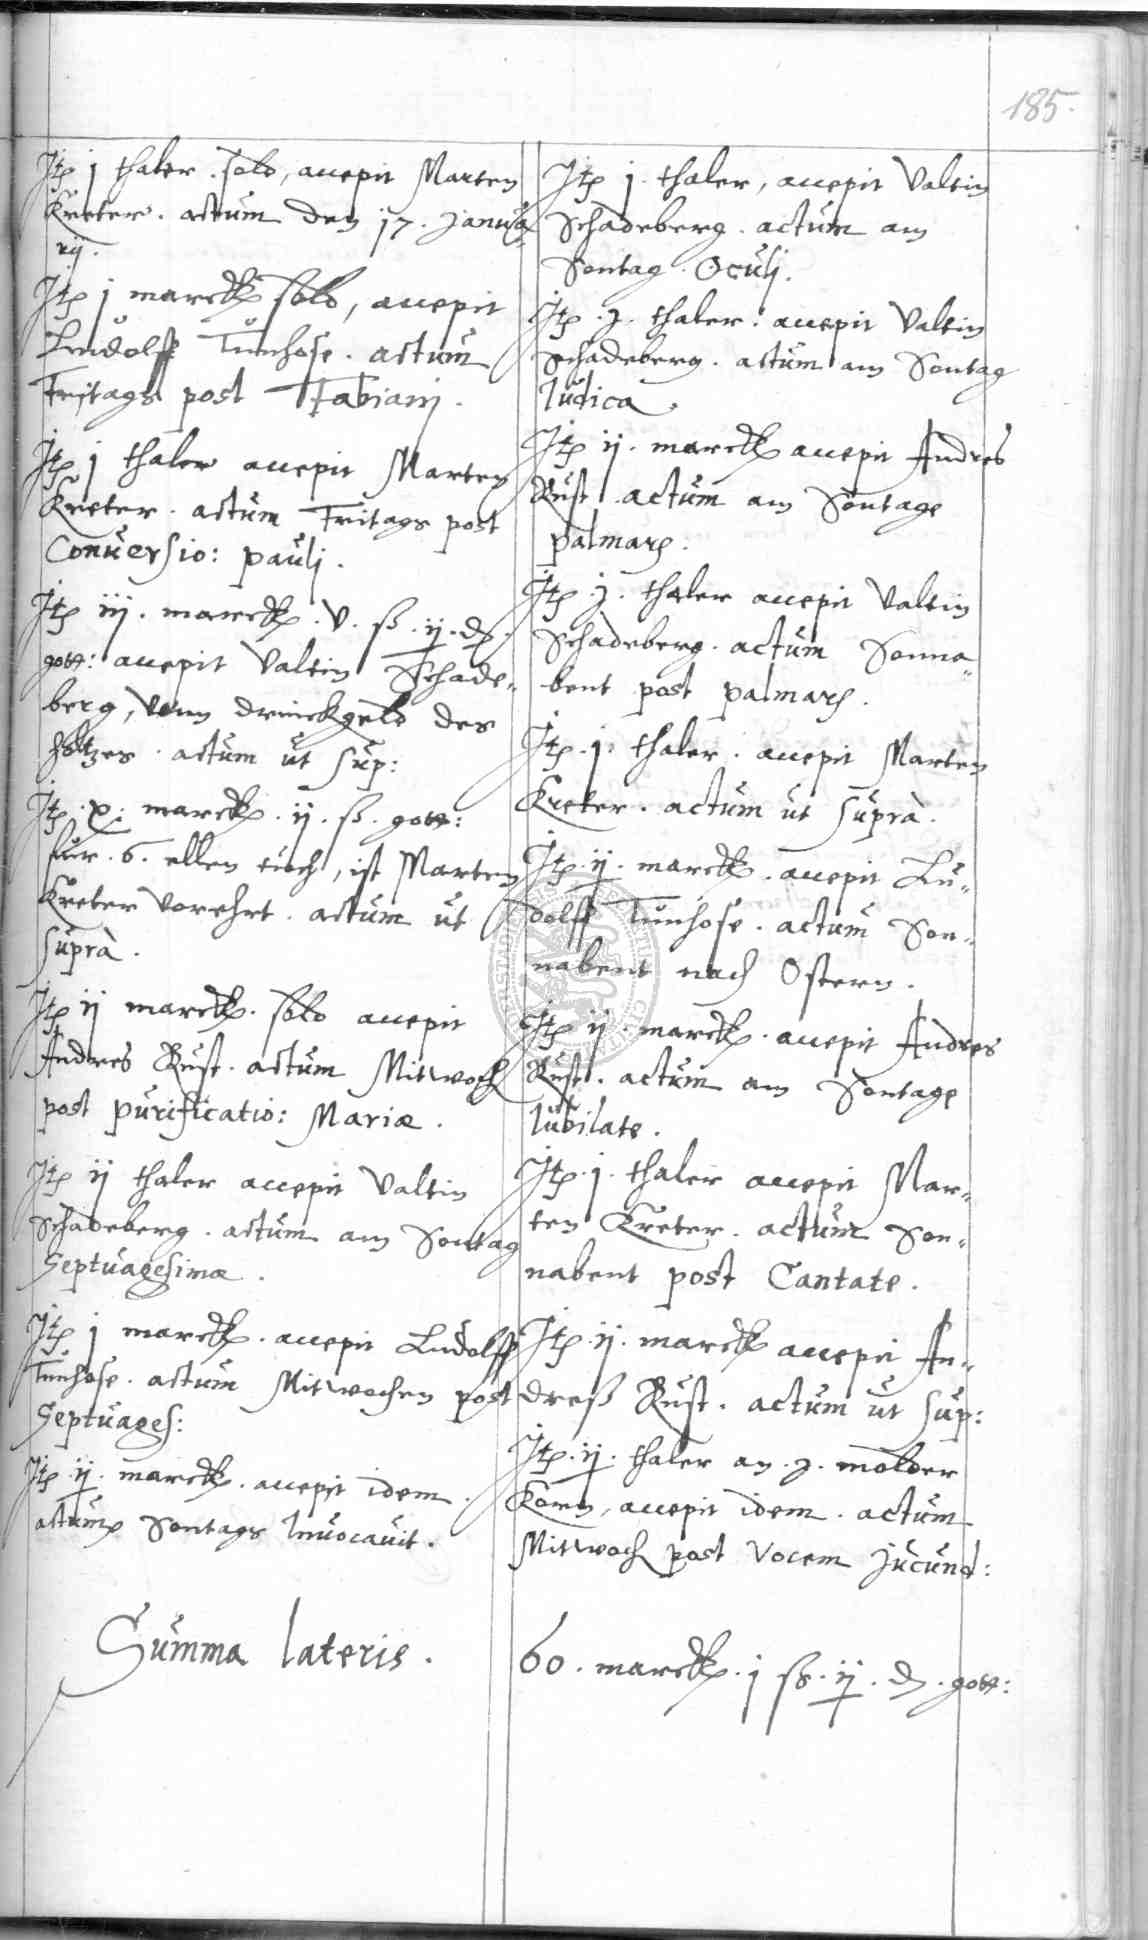 185.
Jtꝑ j thaler. sold, accepit Marten
Kreter. actum den 17. Janua
rij.
Jtꝑ j marckꝑ sold, accepit
Ludolff Tunhose. actum
Fritags post Fabianj.
Jtꝑ j thaler accepit Marten
Kreter. actum Fritags post
Conuersio: paulj.
Jtꝑ iij. marckꝑ. v. ß. ij. ₰.
gott: accepit Valtin Schade„
berg, vom drinckgeld des
holtzes. actum ut sup:
Jtꝑ. x. marckꝑ. ij. ß. gott:
fur. 6. ellen tuch, ist Marten
Kreter vorehrt. actum ut
suprà.
Jtꝑ ij marckꝑ. sold accepit
Andres Rust. actum Mitwoch
post purificatio: Mariæ.
Jtꝑ ij thaler accepit Valtin
Schadeberg. actum am Sontag
Septuagesimæ.
Jtꝑ j marckꝑ. accepit Ludolff
Tunhose. actum Mitwochen post
Septuages:
Jtꝑ ij. marckꝑ. accepit idem.
actum Sontags Inuocauit.
Jtꝑ j. thaler, accepit Valtin
Schadeberg. actum am
Sontag. Oculj.
Jtꝑ. j. thaler. accepit Valtin
Schadeberg. actum am Sontag
Iudica.
Jtꝑ ij. marckꝑ accepit Andres
Rust. actum am Sontage
palmarꝫ.
Jtꝑ j. thaler accepit Valtin
Schadeberg. actum Sonna„
bent post palmarꝫ.
Jtꝑ. j. thaler. accepit Marten
Kreter. actum ut suprà.
Jtꝑ. ij. marckꝑ. accepit Lu„
dolff Tunhose. actum Son„
nabent nach Ostern.
Jtꝑ ij. marckꝑ. accepit Andres
Rust. actum am Sontage
Iubilate.
Jtꝑ. j. thaler accepit Mar„
ten Kreter. actum Son„
nabent post Cantate.
Jtꝑ. ij. marckꝑ accepit An„
dreß Rust. actum ut sup:
Jtꝑ. ij. thaler an. j. molder
Korn, accepit idem. actum
Mitwoch post Vocem jucund:
Summa lateris. 60. marckꝑ. j ß. ij. ₰. gott: